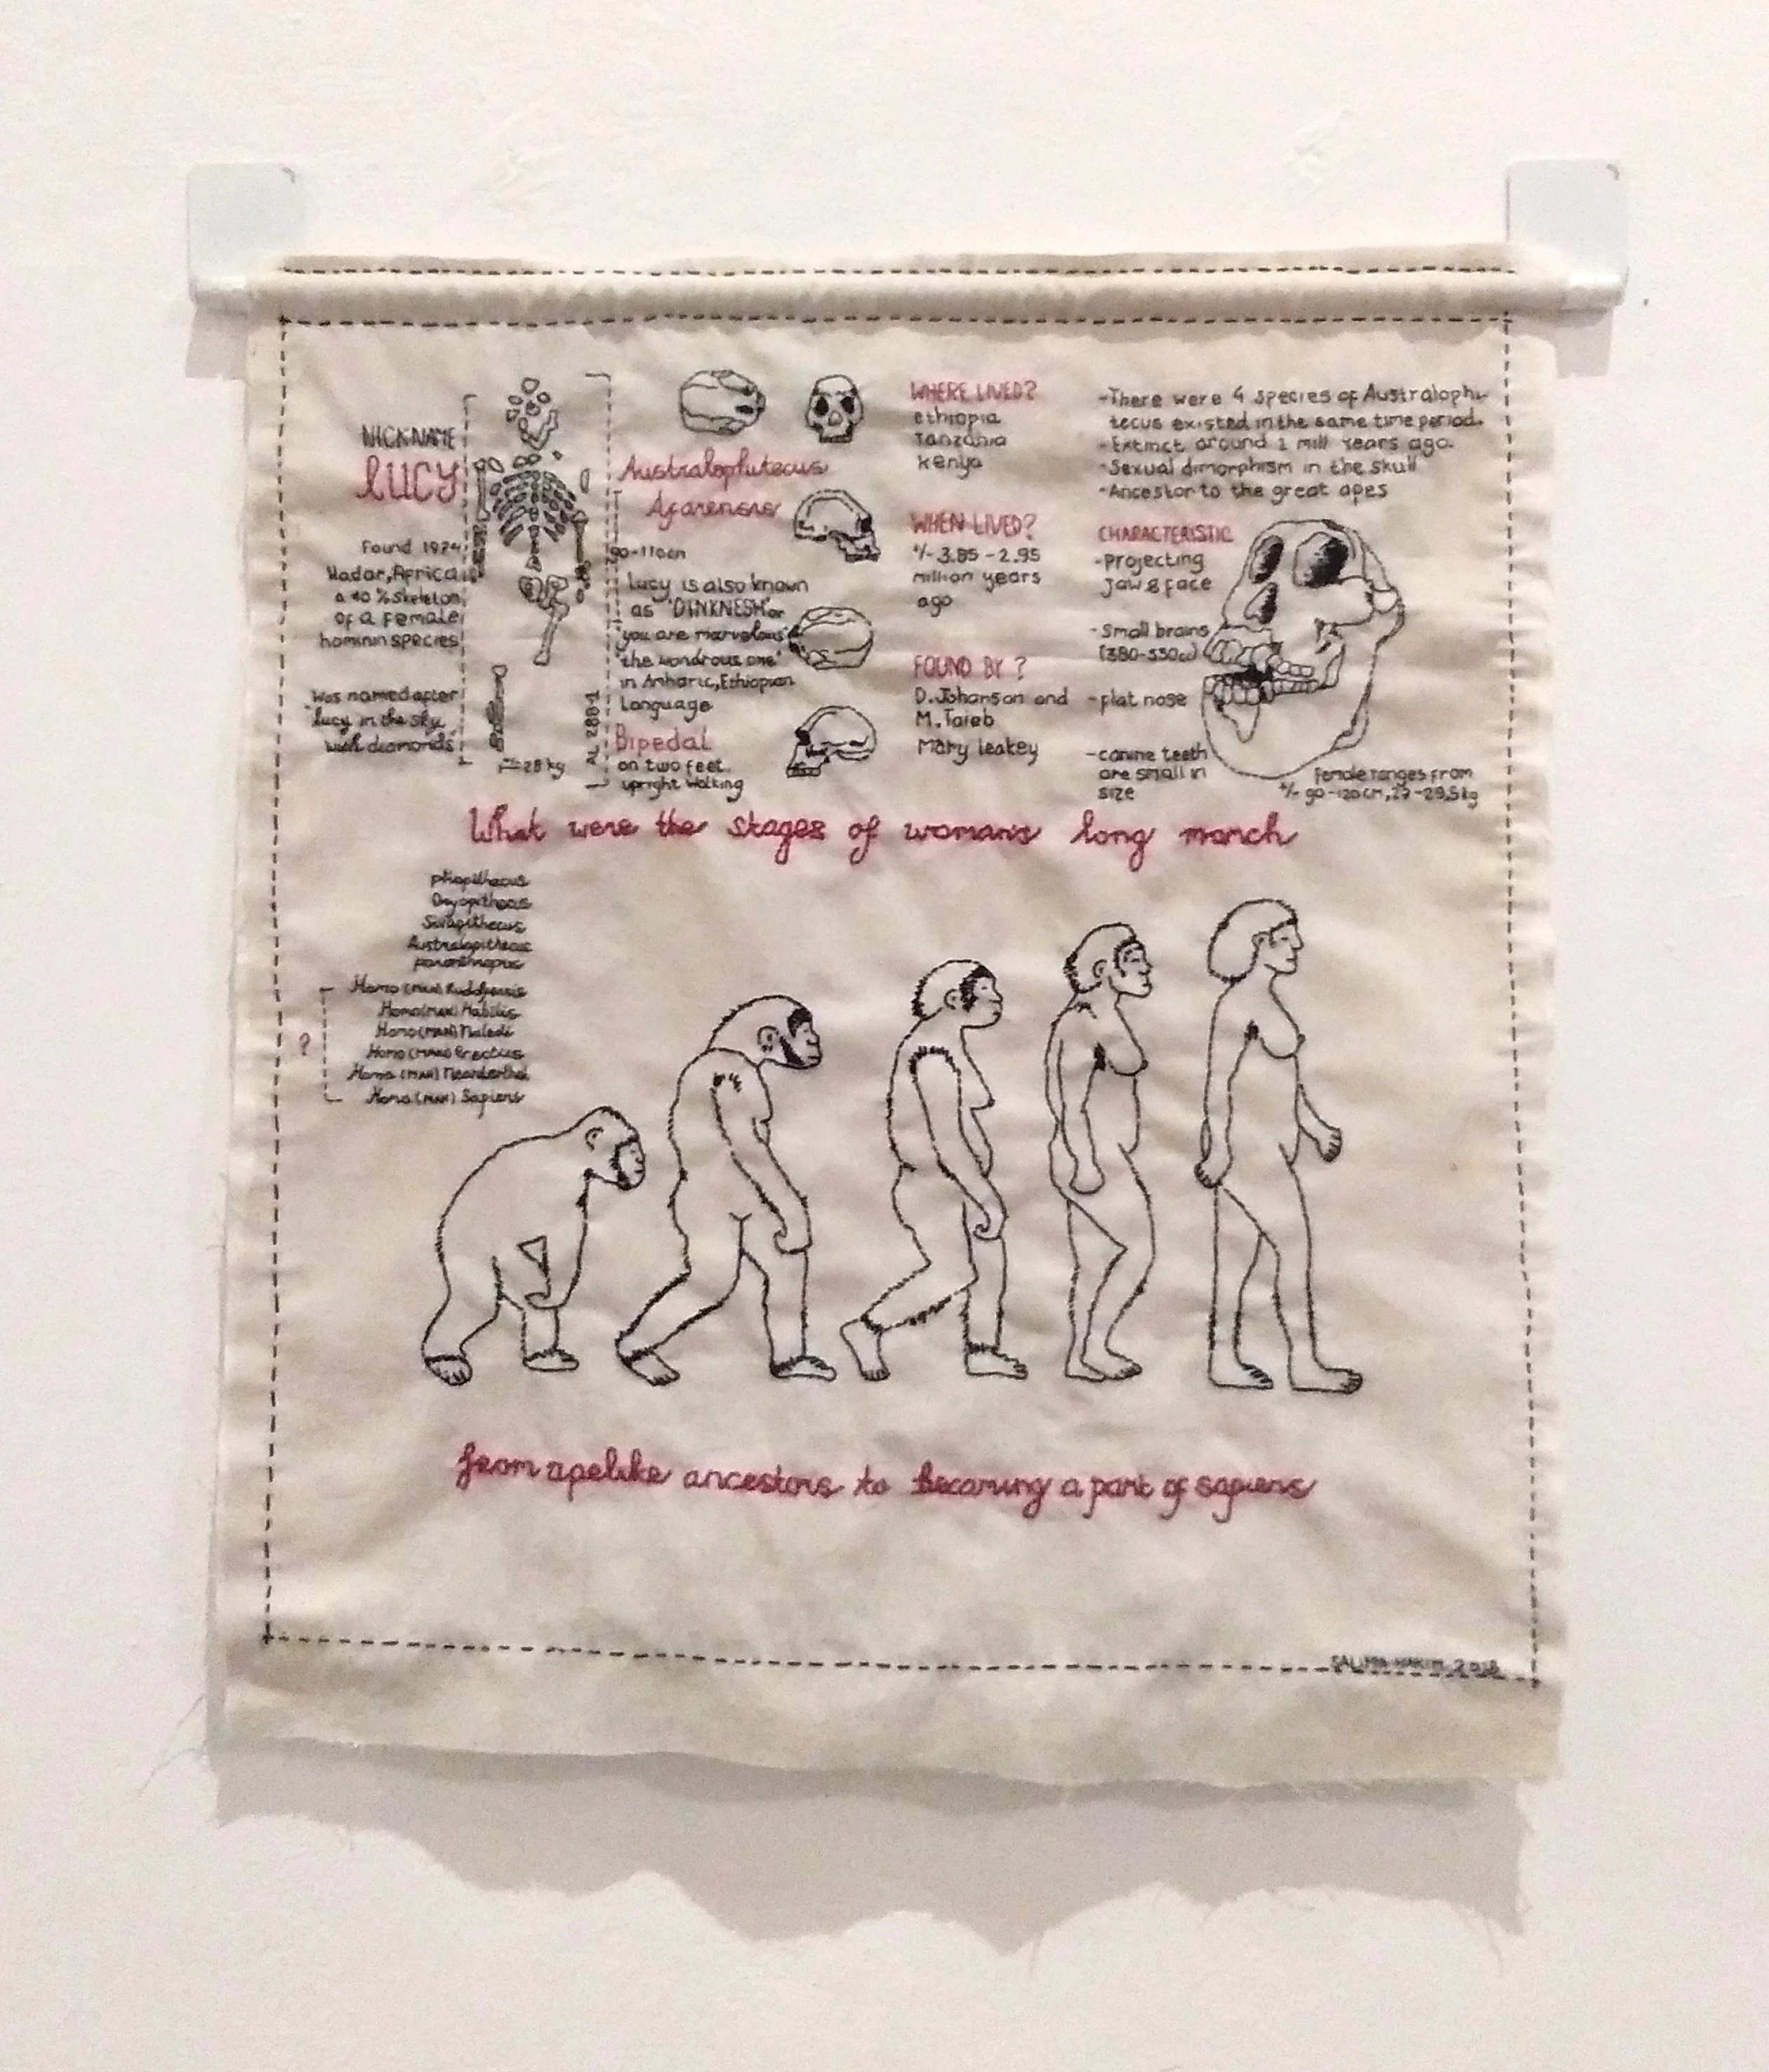 NICKNAME
LUCY
Found 1974
Hadar, Africa
a 40% Skeleton
of a Female
hominin species
Was named after
"lucy in the sky
with diamonds"
28 kg
AL 288-1
Australophitecus
Afarensis
90-110cm
Lucy is also known
as "DINKNESH" or
"you are marvelous"
"the wondrous one"
in Amharic, Ethiopian
Language
Bipedal
on two feet.
upright walking
WHERE LIVED?
ethiopia
Tanzania
Kenya
WHEN LIVED?
+/- 3.85 - 2.95
million years
ago
FOUND BY ?
D. Johanson and
M. Taieb
Mary leakey
-There were 4 species of Australophi-
tecus existed in the same time period.
-Extinct around 2 mill years ago.
-Sexual dimorphism in the skull
-Ancestor to the great apes
CHARACTERISTIC
-projecting
jaw & face
-Small brains
(380-550cc)
-flat nose
-canine teeth
are small in
size
Female ranges from
+/- 90-120cm, 27-29,5kg
What were the stages of womans long march
pliopithecus
Dryopithecus
Sivapithecus
Australopithecus
paranthropus
Homo (MAN) Rudolfensis
Homo (MAN) Habilis
Homo (MAN) Naledi
?
Homo (MAN) Erectus
Homo (MAN) Neanderthal
Homo (MAN) Sapiens
from apelike ancestors to becoming a part of sapiens
SALIMA HAKIM, 2018